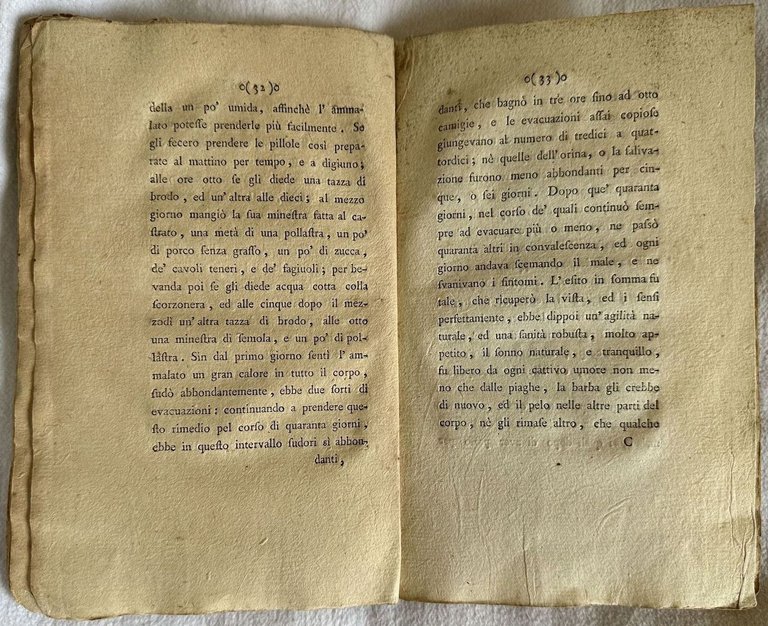 o(32)o
della un po' umida, affinchè l' amma-
lato poteſſe prenderle più facilmente. Se
gli fecero prendere le pillole così prepa-
rate al mattino per tempo, e a digiuno;
alle ore otto ſe gli diede una tazza di
brodo, ed un' altra alle dieci; al mezzo
giorno mangiò la ſua mineſtra fatta al ca-
ſtrato, una metà di una pollaſtra, un po'
di porco ſenza graſſo, un po' di zucca,
de' cavoli teneri, e de' fagiuoli; per be-
vanda poi ſe gli diede acqua cotta colla
ſcorzonera, ed alle cinque dopo il mez-
zodì un' altra tazza di brodo, alle otto
una mineſtra di ſemola, e un po' di pol-
laſtra. Sin dal primo giorno ſentì l' am-
malato un gran calore in tutto il corpo,
ſudò abbondantemente, ebbe due ſorti di
evacuazioni: continuando a prendere que-
ſto rimedio pel corſo di quaranta giorni,
ebbe in queſto intervallo ſudori sì abbon-
danti,
o(33)o
danti, che bagnò in tre ore ſino ad otto
camigie, e le evacuazioni aſſai copioſe
giungevano al numero di tredici a quat-
tordici; nè quelle dell' orina, o la ſaliva-
zione furono meno abbondanti per cin-
que, o ſei giorni. Dopo que' quaranta
giorni, nel corſo de' quali continuò ſem-
pre ad evacuare più o meno, ne paſſò
quaranta altri in convaleſcenza, ed ogni
giorno andava ſcemando il male, e ne
ſvanivano i ſintomi. L' eſito in ſomma fu
tale, che ricuperò la viſta, ed i ſenſi
perfettamente, ebbe dippoi un' agilità na-
turale, ed una ſanità robuſta, molto ap-
petito, il ſonno naturale, e tranquillo,
fu libero da ogni cattivo umore non me-
no che dalle piaghe, la barba gli crebbe
di nuovo, ed il pelo nelle altre parti del
corpo, nè gli rimaſe altro, che qualche
C